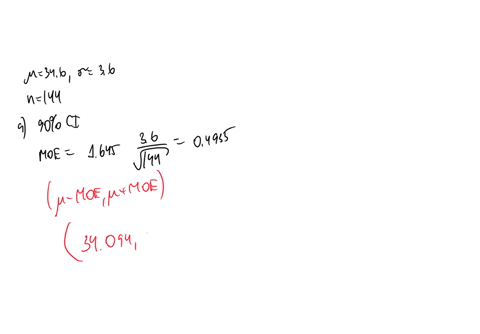 μ=34.6, σ= 3.6
n=144
a) 90% CI
MOE = 1.645 3.6/√144 = 0.4935
(μ-MOE, μ+MOE)
(34.094,